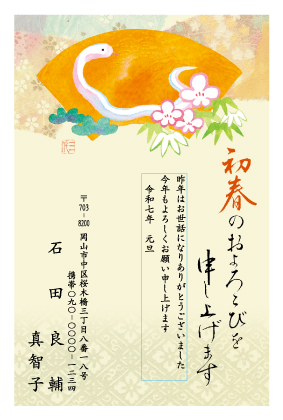 初春のおよろこびを
申し上げます
昨年はお世話になりありがとうございました
今年もよろしくお願い申し上げます
令和七年 元旦
〒703-8200 岡山市中区桜木橋三丁目八番一八号
携帯〇九〇-〇〇〇〇-一二三四
石田良輔
真智子